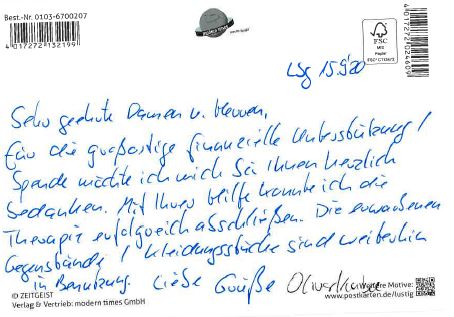 Best.-Nr. 0103-6700207
4 017272 132199
4 017272 024609
FSC
MIX
Papier
Lbg 15.9.20
Sehr geehrte Damen u. Herren,
für die großartige finanzielle Unterstützung /
Spende möchte ich mich bei Ihnen herzlich
bedanken. Mit Ihrer Hilfe konnte ich die
Therapie erfolgreich abschließen. Die erworbenen
Gegenstände / Kleidungsstücke sind weiterhin
in Benutzung. Liebe Grüße Oliver
ID ZEITGEIST
Verlag & Vertrieb: modern times GmbH
weitere Motive:
www.postkarten.de/lustig